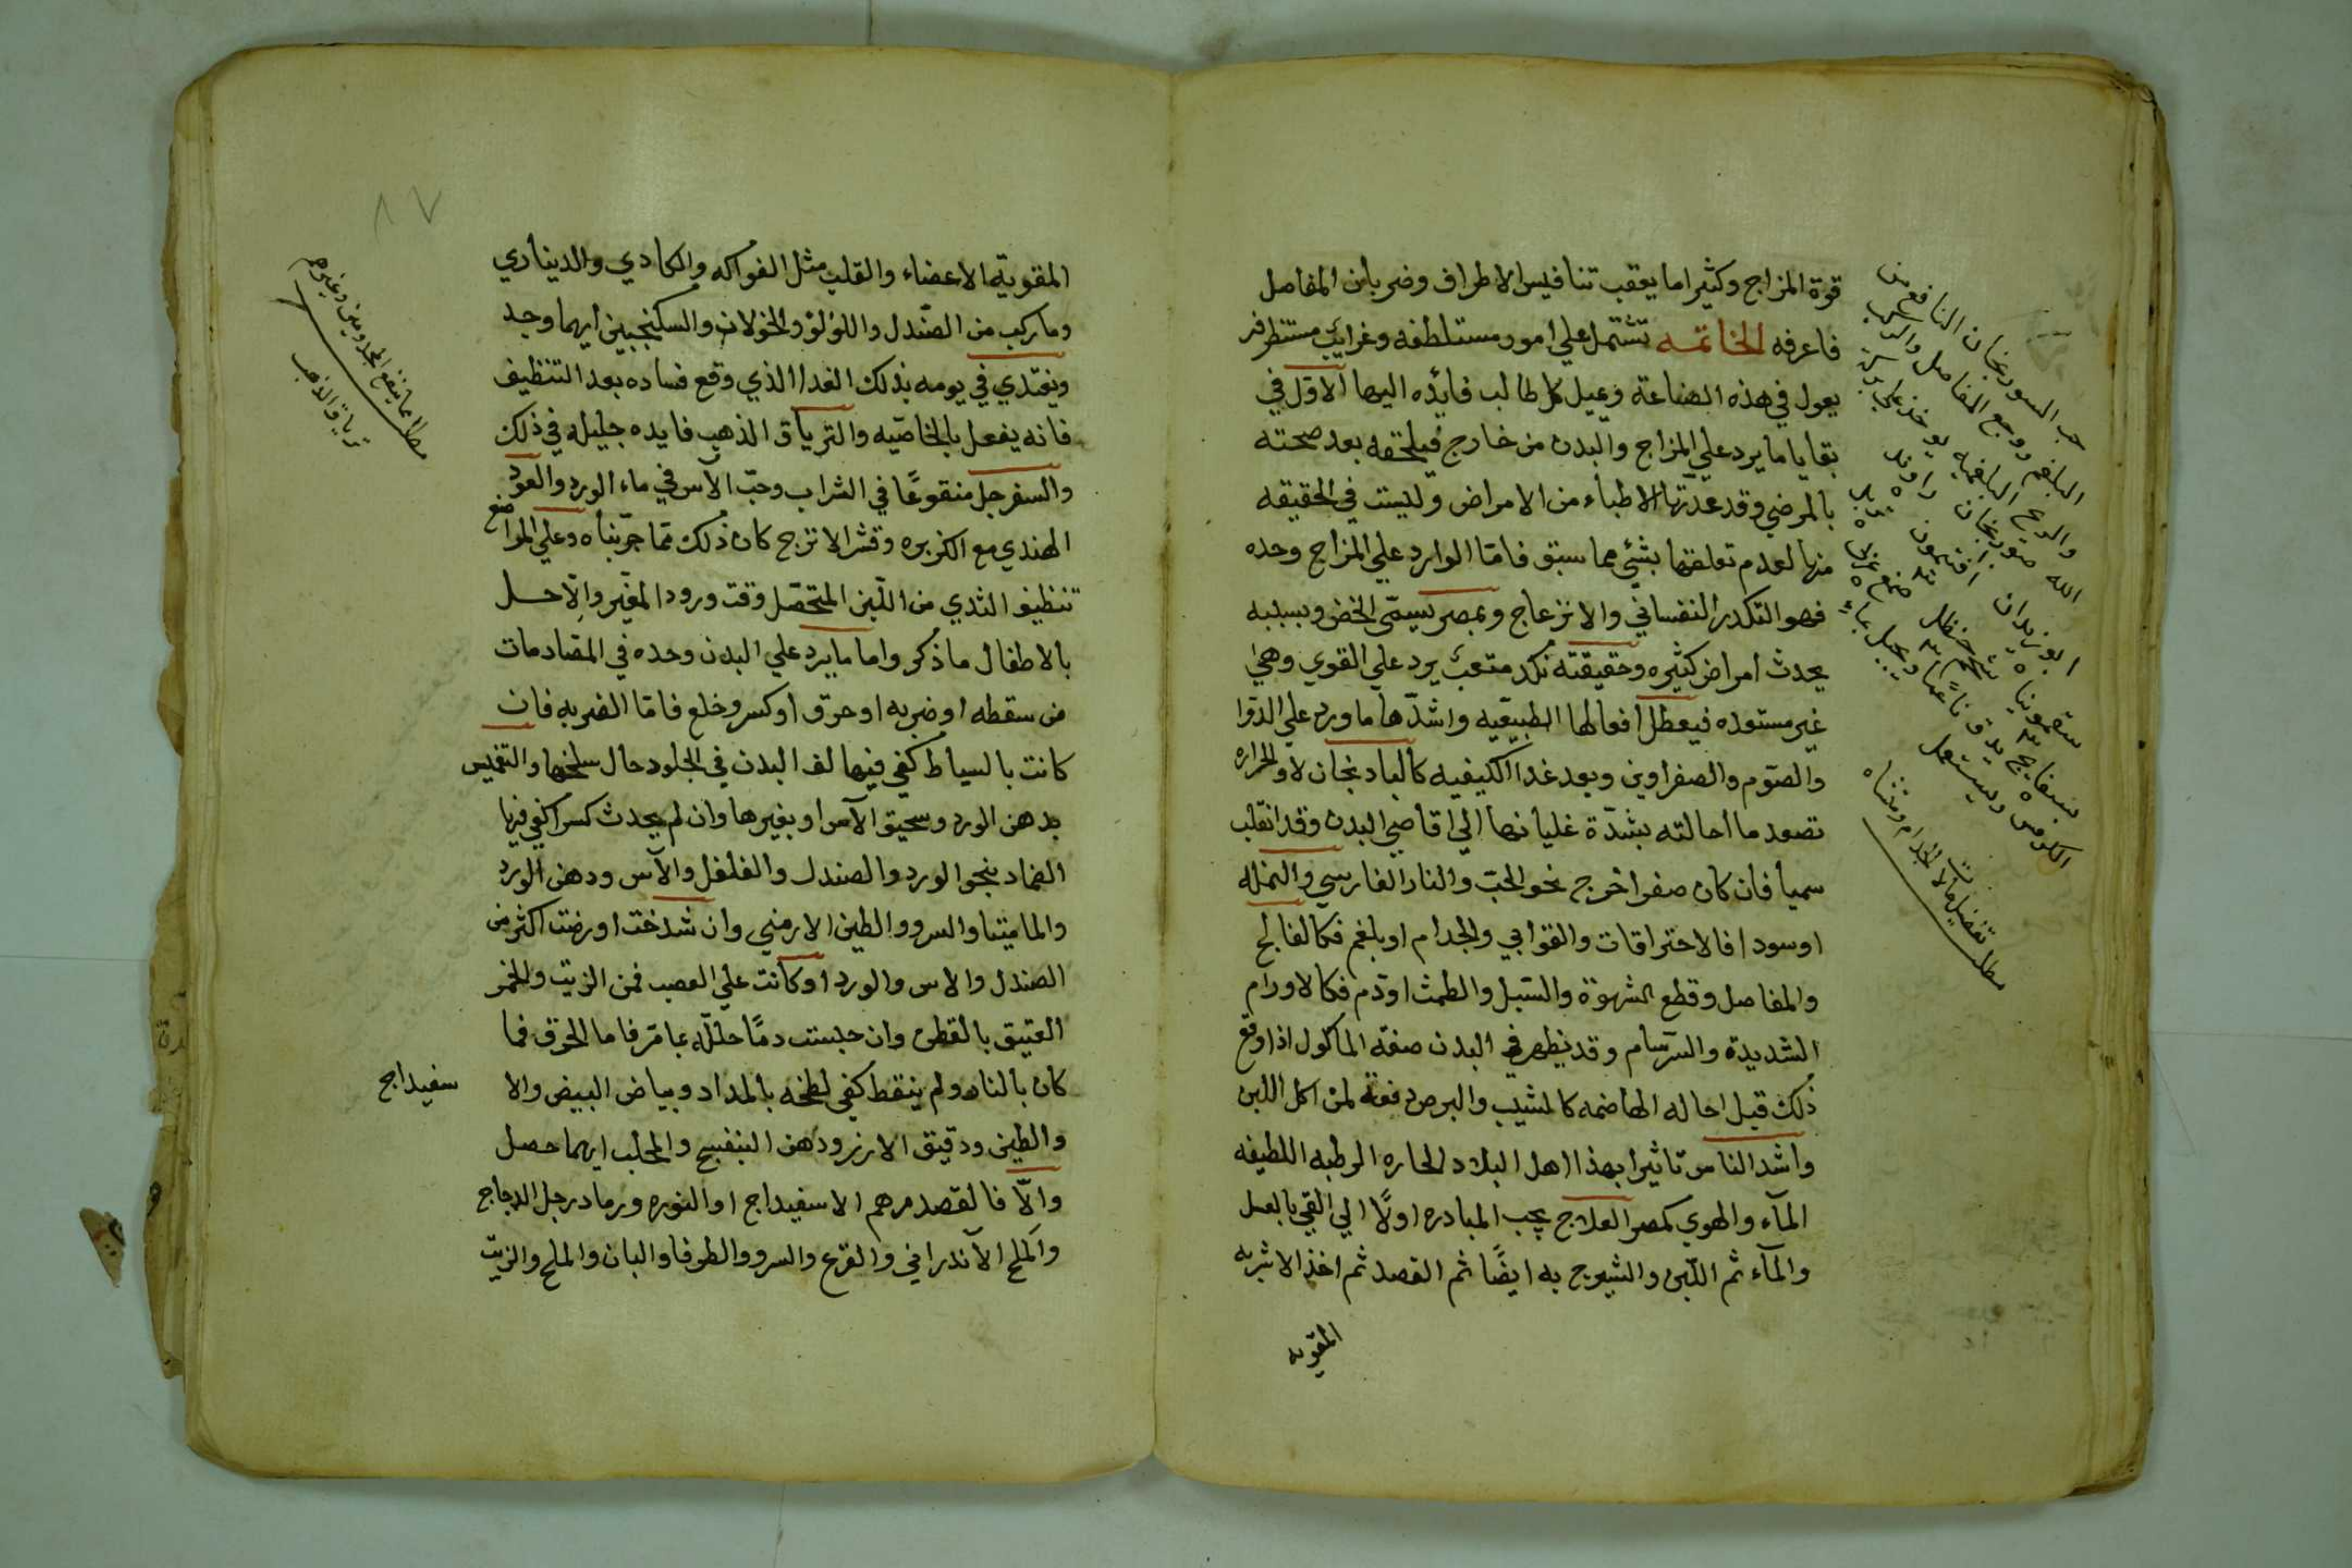 قوة المزاج وكثيرا ما يعقب تنافيس الاطراف وضربان المفاصل
فاعرفه الخاتمه تشتمل علي امور مستلطفه وغرايب مستظرفه
يعول في هذه الصناعة ويميل كل طالب فائده اليها الاول في
بقايا ما يرد علي المزاج والبدن من خارج فيلحقه بعد صحته
بالمرضي وقد عدتها الاطباء من الامراض وليست في الحقيقه
منها لعدم تعلقها بشئ مما سبق فاما الوارد علي المزاج وحده
فهو التكدر النفساني والانزعاج وبمصر يسمي الخض وبسببه
يحدث امراض كثيره وحقيقته نكد متعب يرد علي القوي وهي
غير مستعده فيعطل افعالها الطبيعيه واشدها ما ورد علي الدوا
والصوم والصفراوين وبعد غدا الكيفيه كالبادنجان لاو الحراره
تصعد ما احالته بشدة غليانها الي اقاصي البدن وقد انقلب
سميا فان كان صفرا خرج نحو الحب والنار الفارسي والنمله
او سودا فالاحتراقات والقوابي والجدام او بلغم فكالفالج
والمفاصل وقطع الشهوة والسبل والطمث او دم فكالاورام
الشديدة والسرسام وقد يظهر في البدن صفه الماكول اذا وقع
ذلك قبل احاله الهاضمه كالمشيب والبرص دفعة لمن اكل اللبن
واشد الناس تاثيرا بهذا اهل البلاد الحاره الرطبه اللطيفه
المآء والهوي كمصر العلاج يجب المبادره اولًا الي القي بالعسل
والمآء ثم اللبن والشيرج به ايضًا ثم الفصد ثم اخذ الاشربه
المقويه
حب السورنجان النافع من
البلغم ووجع المفاصل والركب
والريح البلغميه يوخذ علي بركة
الله سورنجان راوند
ابوزيدان افتيمون
سقمونيا شحم حنظل صمغ عربي
بسفايج يدق ناعما ويحبل بماء
الكرفس ويستعمل
مطلب تفضيل مالا الجدام ومثناه
المقوية الاعضاء والقلب مثل الفواكه والكادي والديناري
وما ركب من الصندل واللؤلؤ والخولان والسكنجبين ايهما وجد
ويغتدي في يومه بذلك الغدا الذي وقع فساده بعد التنظيف
فانه يفعل بالخاصيه والترياق الذهب فايده جليله في ذلك
والسفرجل منقوعًا في الشراب وحب الآس في ماء الورد والعود
الهندي مع الكزبره وقشر الاترج كان ذلك مما جربناه وعلي المواضع
تنظيف الثدي من اللبن المتحصل وقت ورود المغير والّا حل
بالاطفال ما ذكر واما ما يرد علي البدن وحده في المصادمات
من سقطه او ضربه او حرق او كسر وخلع فاما الضربه فان
كانت بالسياط كفي فيها لف البدن في الجلود حال سلخها والتغميس
بدهن الورد وسحيق الآس او بغيرها وان لم يحدث كسرا كفي فيها
الضماد بنحو الورد والصندل والفلفل والآس ودهن الورد
والماميتا والسرو والطين الارمني وان شدخت او رضت اكثر من
الصندل والاس والورد او كانت علي العصب فمن الزيت والخمر
العتيق بالقطن وان حبست دمًا حلله بما مر فاما الحرق فما
كان بالنار ولم ينقط كفي لطخه بالمداد وبياض البيض والا سفيداج
والطين ودقيق الارز ودهن البنفسج والمحلب ايهما حصل
والّا فالقصد مرهم الاسفيداج او النوره ورماد رجل الدجاج
والملح الآندراني والقرع والسرو والطرفا والبان والملح والزيت
مطلب ما ينفع المجدومين وغيرهم
ترياق الذهب
٨٧